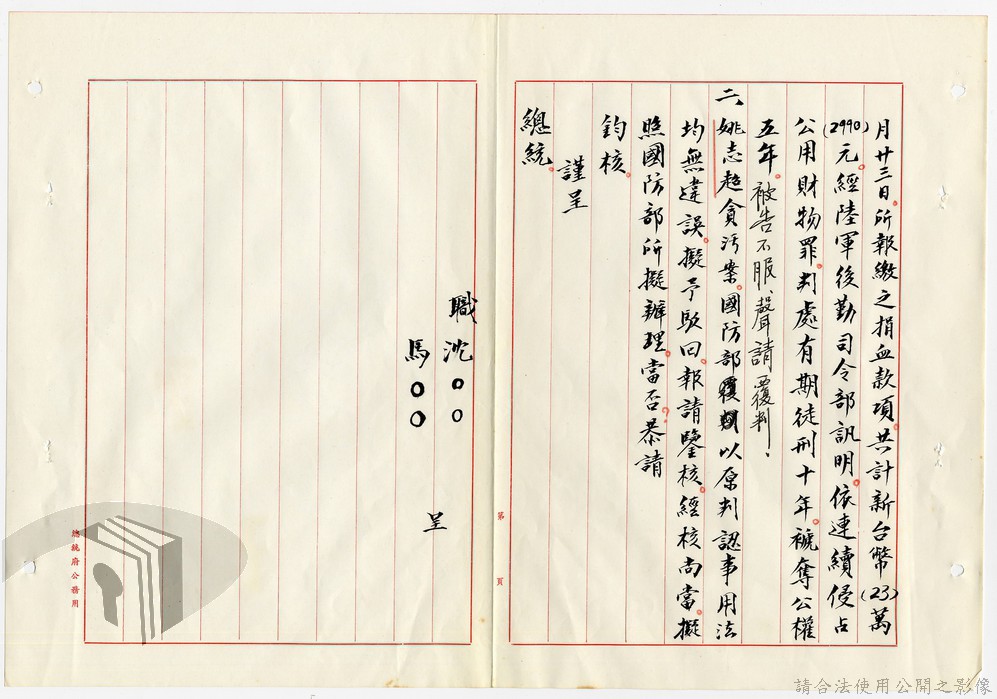 月廿三日。所報繳之捐血款項。共計新台幣(23)萬
(2990)元。經陸軍後勤司令部訊明。依連續侵占
公用財物罪。判處有期徒刑十年。褫奪公權
五年。被告不服、聲請覆判、
二、姚志超貪污案。國防部覆判以原判認事用法
均無違誤。擬予駁回。報請鑒核。經核尚當。擬
照國防部所擬辦理。當否?恭請
鈞核。
謹呈
總統。
職沈〇〇
馬〇〇
呈
第 頁
總統府公務用
請合法使用公開之影像